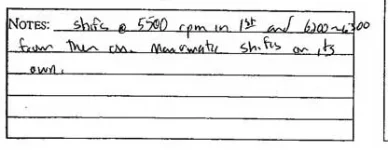 NOTES: shifs @ 5500 rpm in 1st and 6200~6300
from then on. Manumatic shifts on its
own.